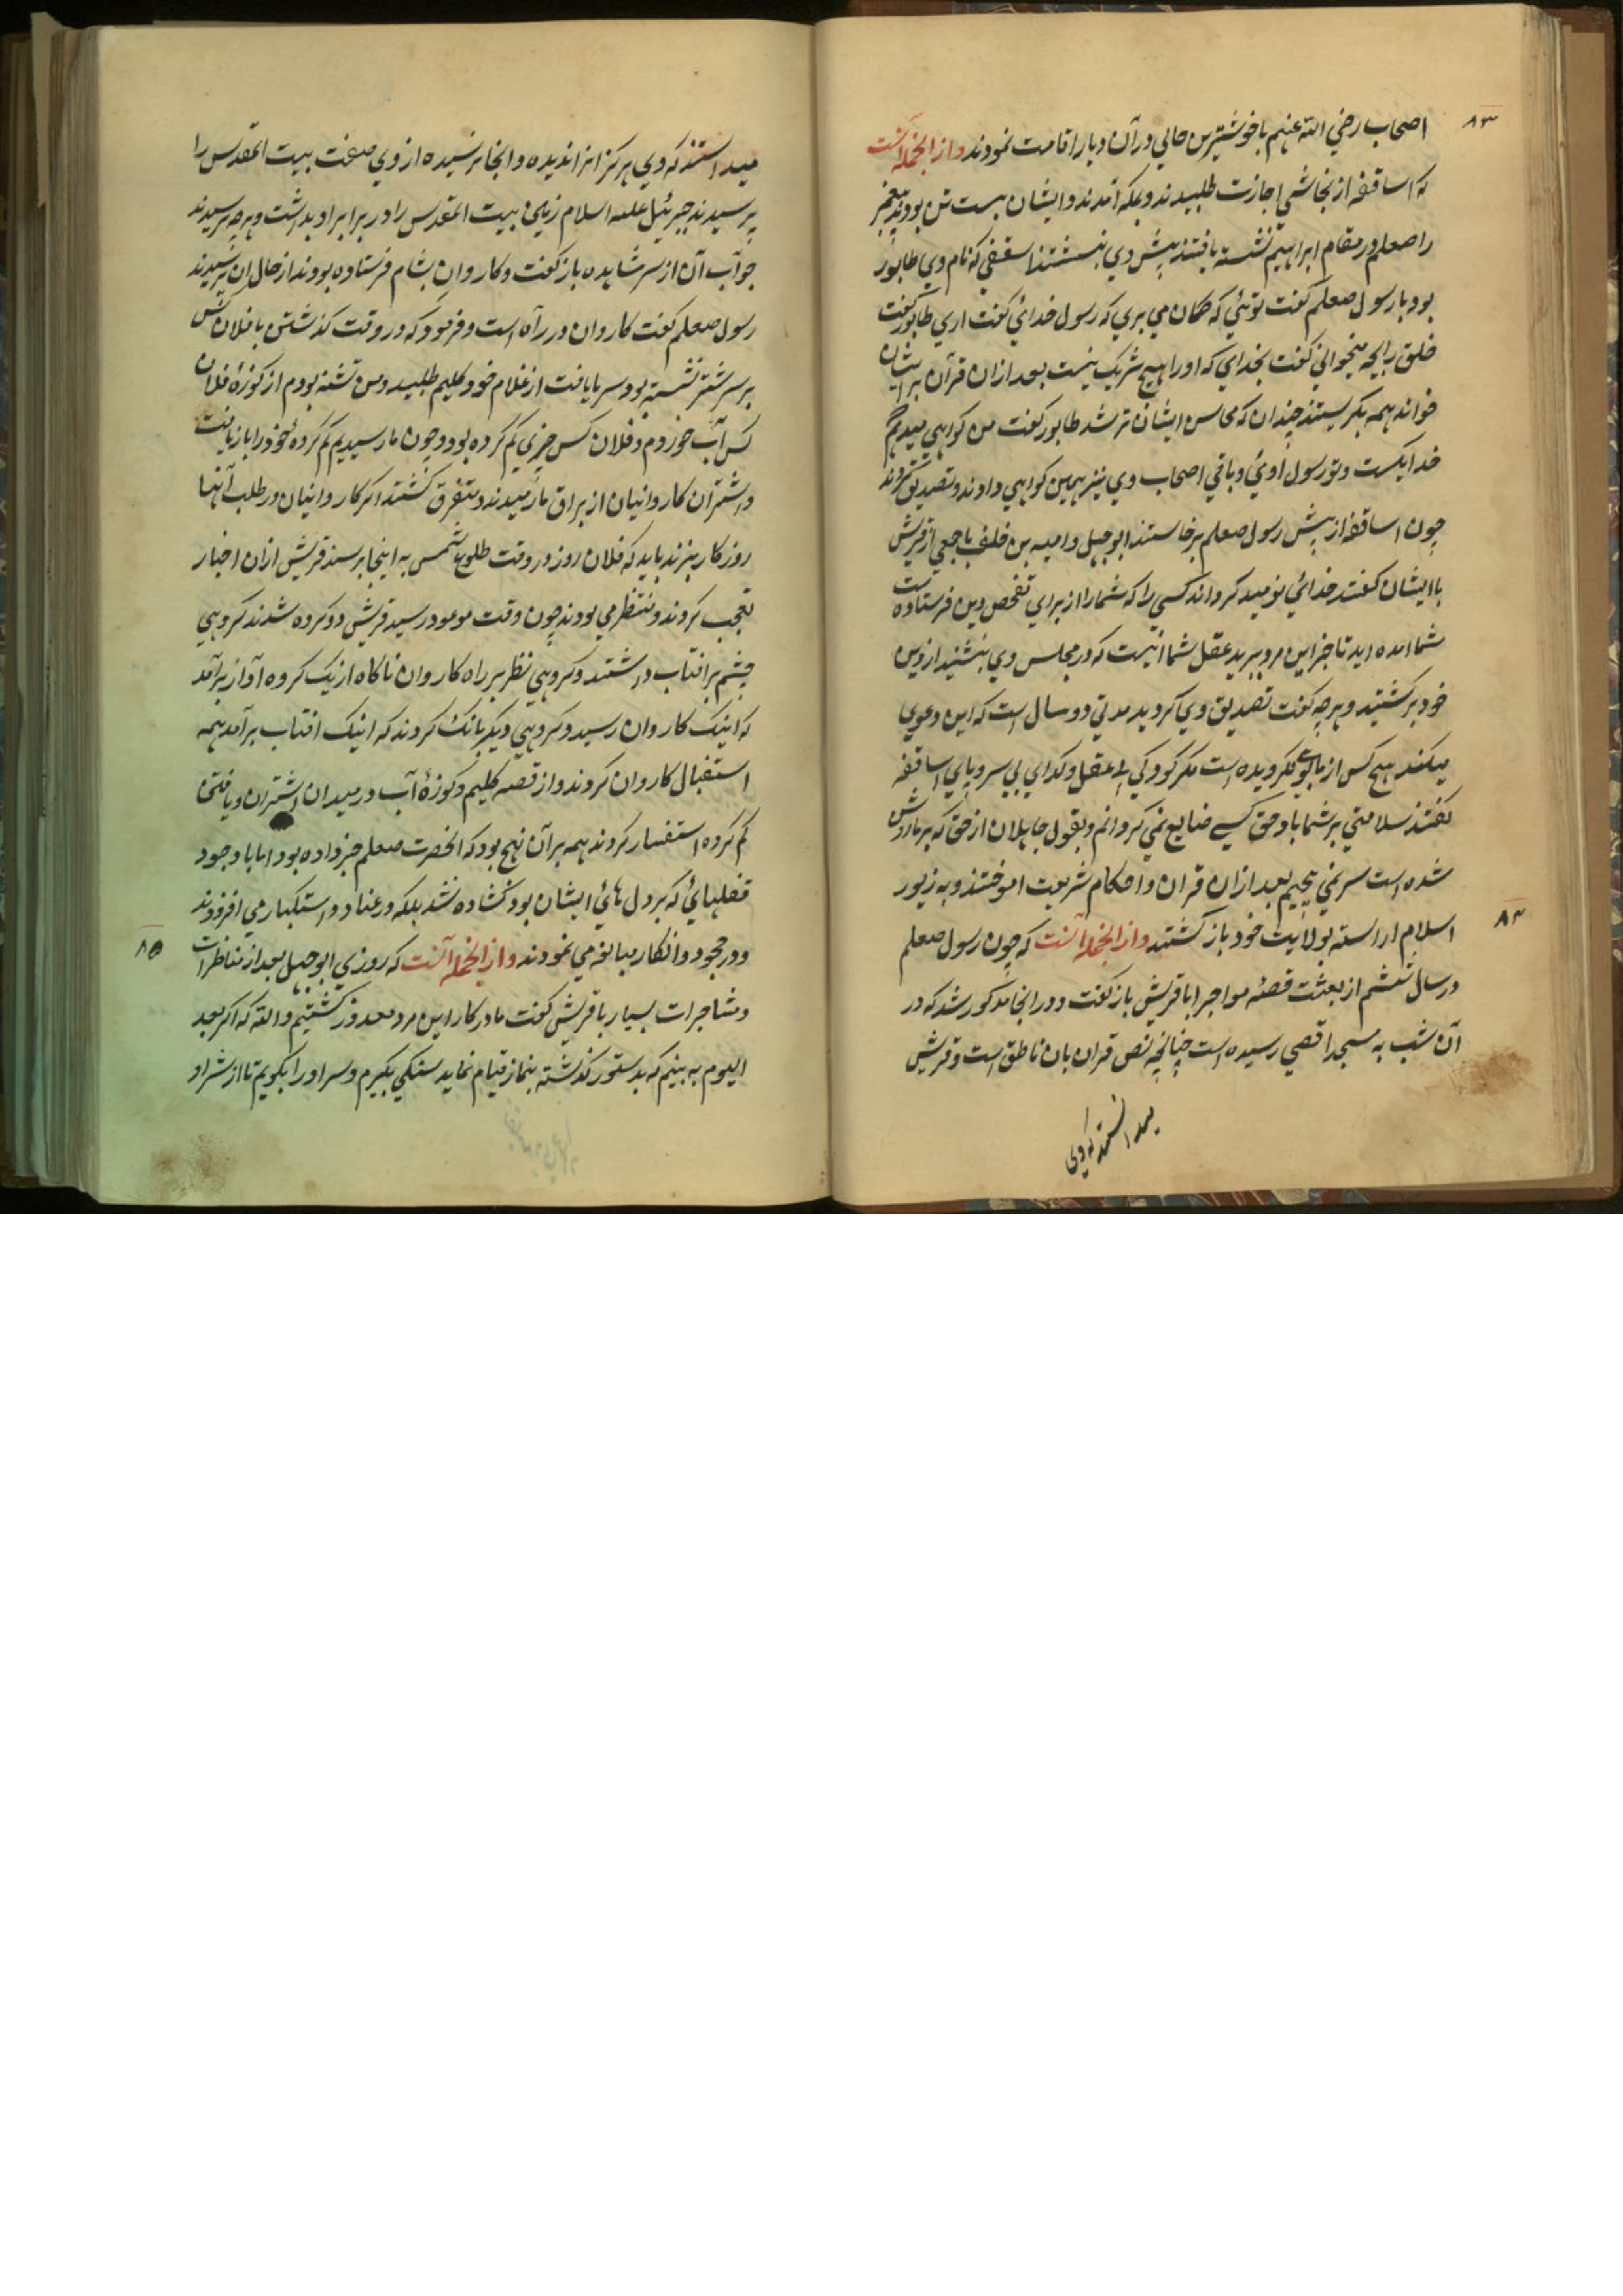 ۸۳
اصحاب رضي الله عنهم با خوشترین حالي در آن دیار اقامت نمودند و از آنجمله آنست
که اساقفه از نجاشي اجازت طلبیدند و بمکه آمدند و ایشان بیست تن بودند پیغمبر
را صعلم در مقام ابراهیم نشسته یافتند پیش وي بنشستند اسقفي که نام وي طابور
بود با رسول صعلم گفت توئي که گمان مي بري که رسول خدائي گفت اري طابور گفت
خلق را بچه میخواني گفت بخداي که او را هیچ شریک نیست بعد ازان قرآن بر ایشان
خواند همه بگریستند چندان که محاسن ایشان تر شد طابور گفت من گواهي میدهم
خدا یکیست و تو رسول اوئي و باقي اصحاب وي نیز همین گواهي دادند و تصدیق کردند
چون اساقفه از پیش رسول صعلم برخاستند ابوجهل و امیه بن خلف با جمعي از قریش
با ایشان گفتند خدائي نومید گرداند کسي را که شما را از براي تفحص دین فرستاده است
شما امده اید تا خبر این مرد ببرید عقل شما اینست که در مجلس وي بنشنید از دین
خود برگشتید و هرچه گفت تصدیق وي کردید مدتي دو سال است که این دعوي
میکند هیچ کس از ما بوي نگرویده است مگر کودکي بي عقل و گداي بي سر و پاي اساقفه
گفتند سلامتي بر شما باد حق کسے ضایع نمي گردانم و بقول جاهلان از حق که بر ما روشن
شده است سر نمي پیچیم بعد ازان قران و احکام شریعت اموختند و به زیور
۸۴
اسلام اراسته بولایت خود باز گشتند و از آنجمله آنست که چون رسول صعلم
در سال ششم از بعثت قصئه مواجرا با قریش باز گفت و در انجا مذکور شد که در
آن شب به مسجد اقصي رسیده است چنانچه نص قران بان ناطق است و قریش
میدانستند که وي
میدانستند که وي هرگز انرا ندیده و انجا نرسیده از وي صفت بیت المقدس را
پرسیدند جبرئیل علیه اسلام زمین بیت المقدس را در برابر او بداشت و هرچه پرسیدند
جواب آن از سر مشاهده باز گفت و کاروان بشام فرستاده بودند از حال ان پرسیدند
رسول صعلم گفت کاروان در راه است و فرمود که در وقت گذشتن با فلان کس
بر سر شتر نشسته بود سرما یافت از غلام خود گلیم طلبید و من تشنه بودم از کوزۀ فلان
کس آب خوردم و فلان کس چیزي گم کرده بود و چون ما رسیدیم گم کردۀ خود را باز یافت
و اشتران کاروانیان از براق ما رمیدند و متفرق گشتند اگر کاروانیان در طلب آنها
روزگار نبرند باید که فلان روز در وقت طلوع شمس به اینجا برسند قریش ازان اخبار
تعجب کردند و منتظر مي بودند چون وقت موعود رسید قریش دو گروه شدند گروهي
چشم بر افتاب داشتند و گروهي نظر بر راه کاروان ناگاه از یک گروه اواز برآمد
که اینک کاروان رسید و گروهي دیگر بانگ کردند که اینک افتاب برآمد همه
استقبال کاروان کردند و از قصه گلیم و کوزۀ آب و رمیدان اشتران و یافتن
گم کرده استفسار کردند همه بر آن نهج بود که آنحضرت صعلم خبر داده بود اما با وجود
قفلهائي که بر دل هائي ایشان بود گشاده نشد بلکه در عناد و استکبار مي افزودند
۸۵
و در جحود و انکار مبالغه مي نمودند و از آنجمله آنست که روزي ابوجهل بعد از مناظرات
و مشاجرات بسیار با قریش گفت ما در کار این مرد معذور گشتیم والله که اگر بعد
الیوم به بینم که بدستور گذشته بنماز قیام نماید سنگي بگیرم و سر او را بکوبم تا از شر او